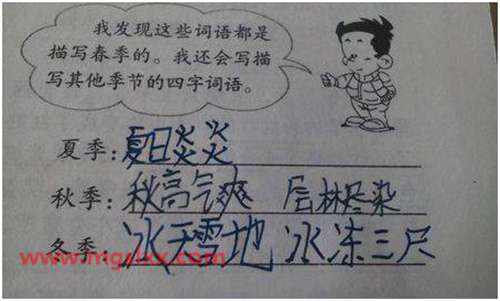 我发现这些词语都是
描写春季的。我还会写描
写其他季节的四字词语。
夏季：夏日炎炎
秋季：秋高气爽 层林尽染
冬季：冰天雪地 冰冻三尺
www.mgslxx.com